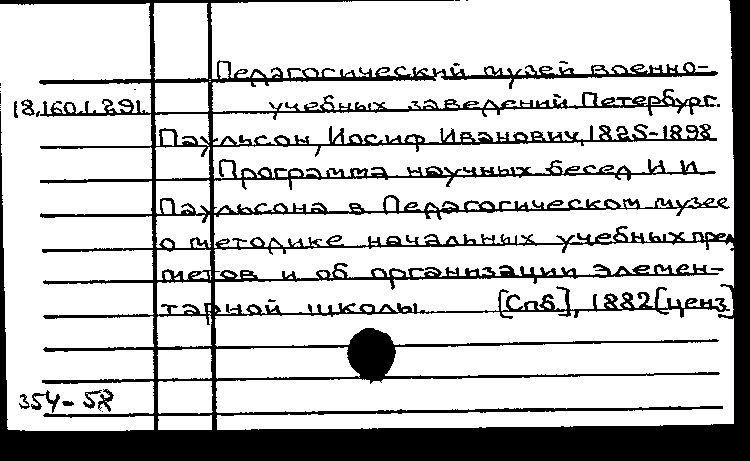 Педагогический музей военно-
18.160.1.291. учебных заведений. Петербург.
Паульсон, Иосиф Иванович, 1825-1898
Программа научных бесед И. И
Паульсона в Педагогическом музее
о методике начальных учебных пред
метов и об организации элемен-
тарной школы. [Спб.], 1882 [ценз]
354-58